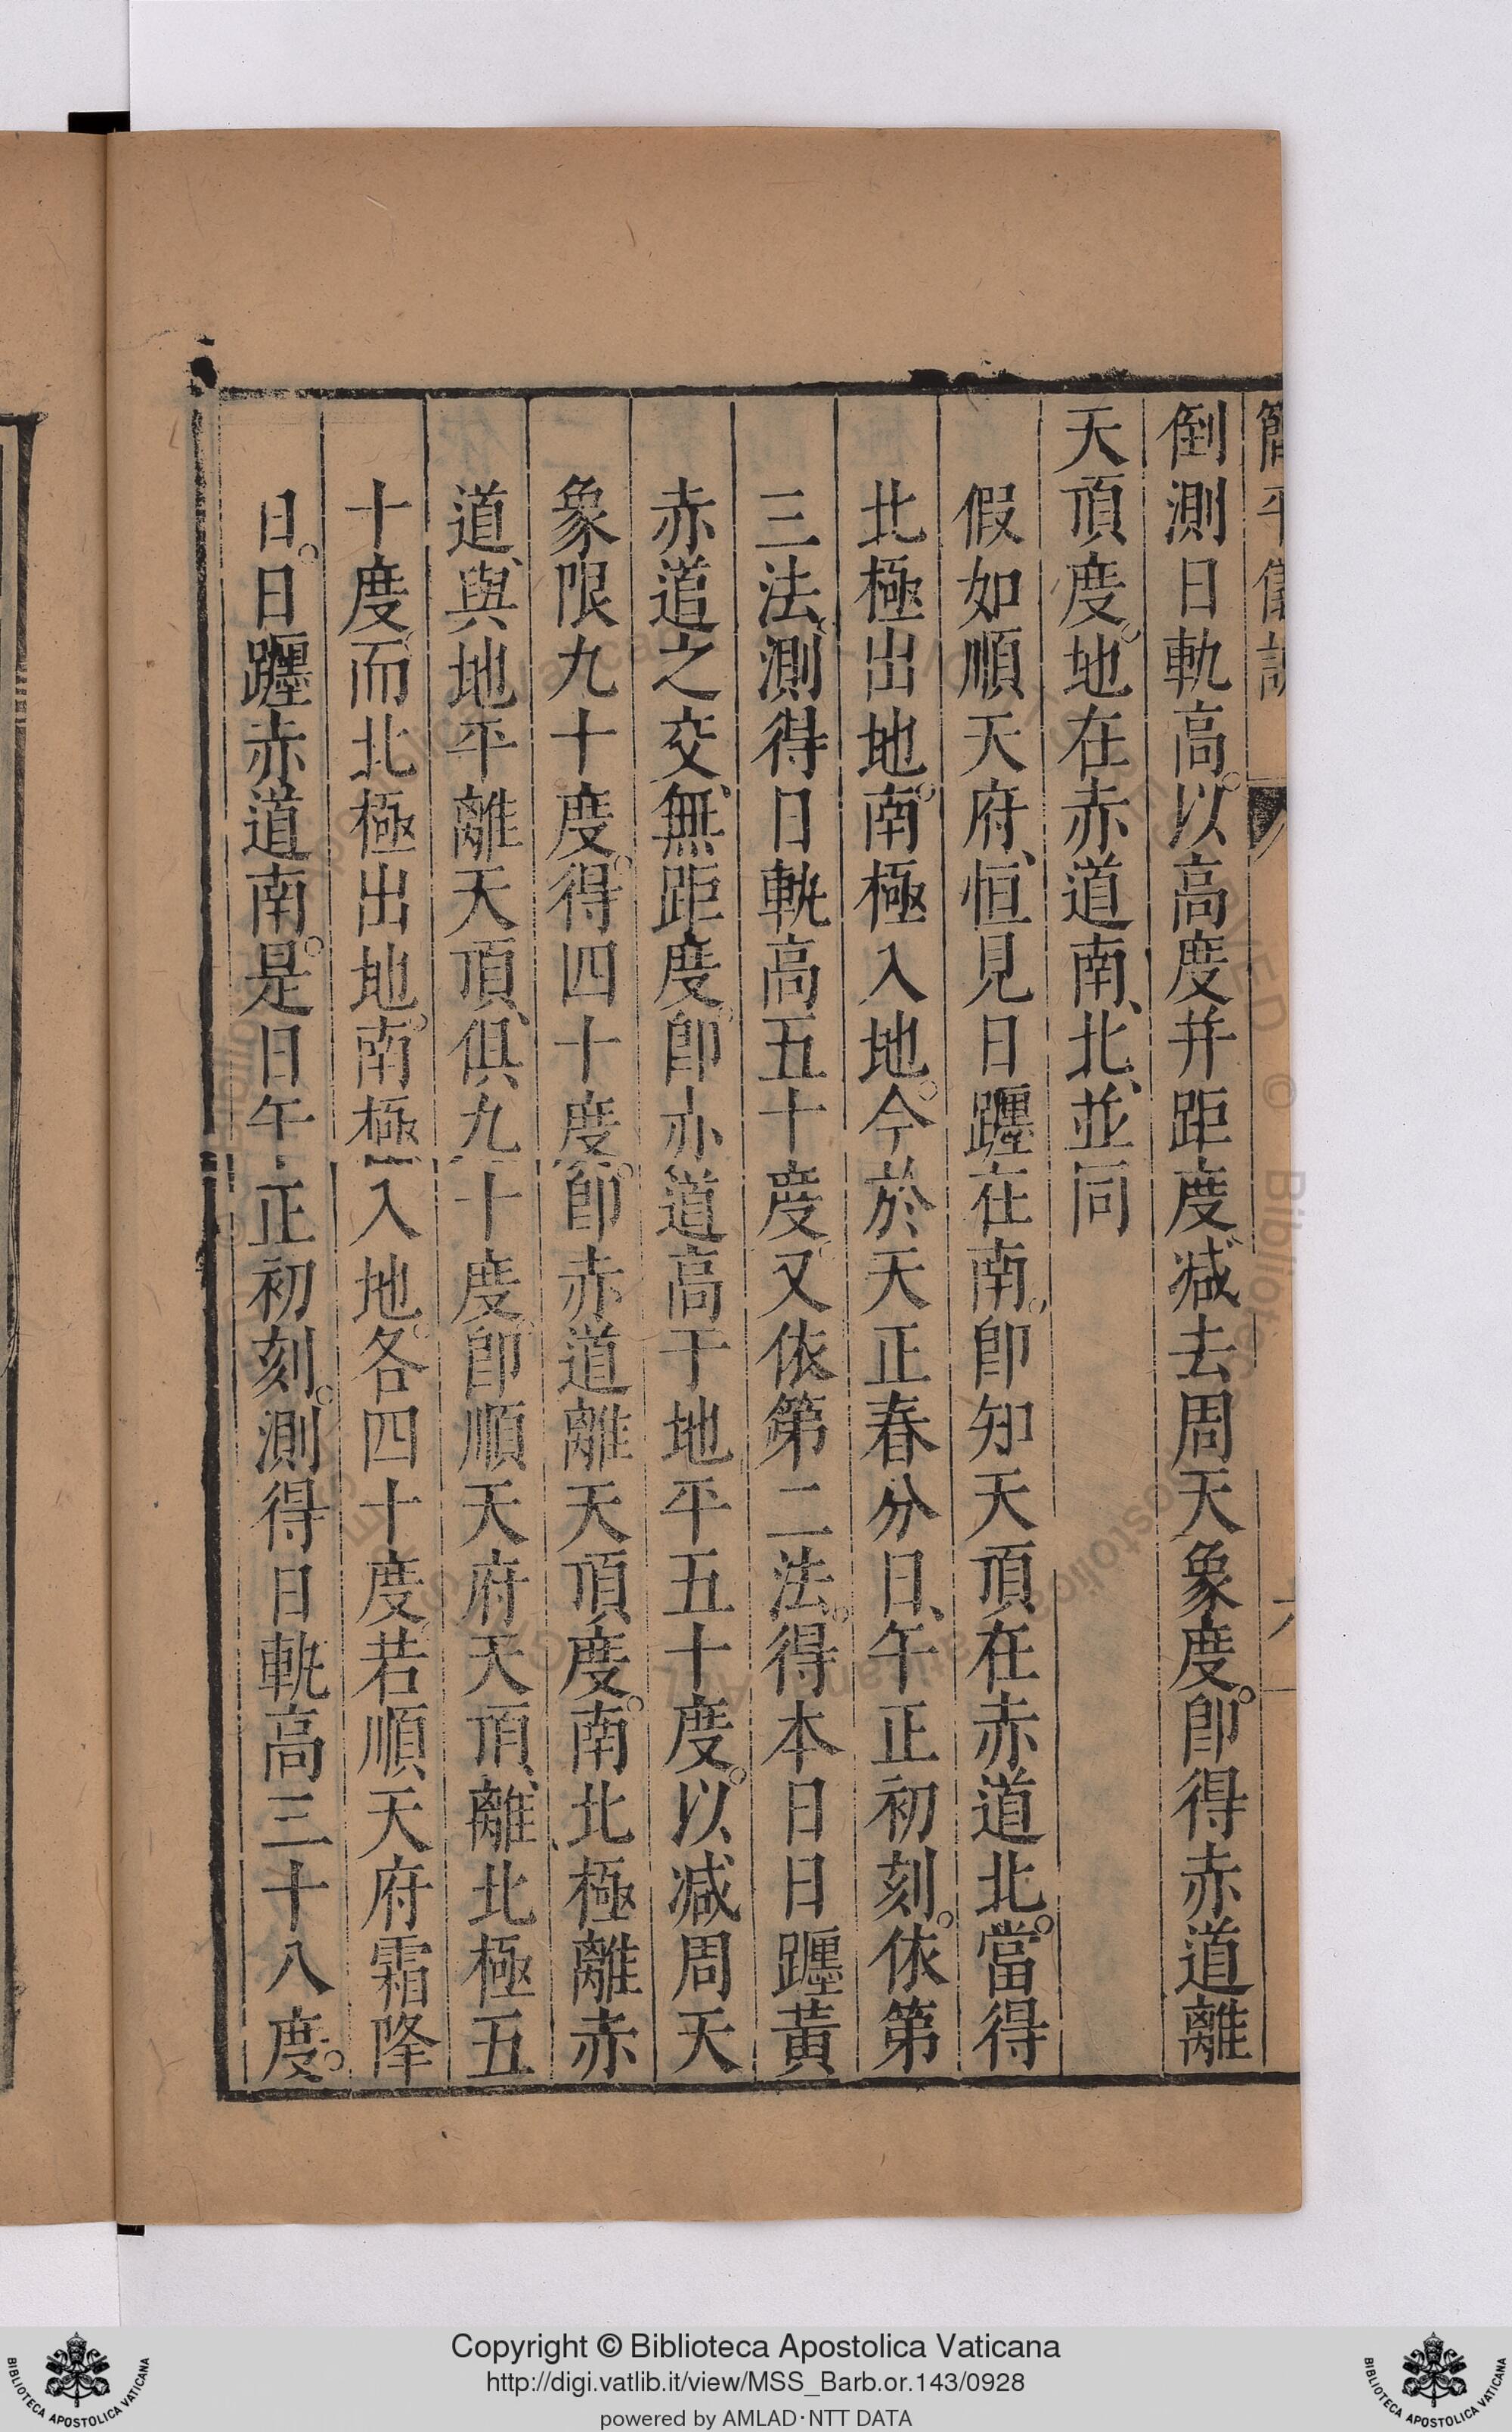 簡平儀說
倒測日軌高。以高度并距度、減去周天象度。卽得赤道離
天頂度。地在赤道南、北、並同
假如順天府、恒見日躔在南。卽知天頂在赤道北。當得
北極出地。南極入地。今於天正春分日、午正初刻。依第
三法。測得日軌高五十度。又依第二法。得本日日躔黃
赤道之交、無距度。卽赤道高于地平五十度。以减周天
象限九十度。得四十度。卽赤道離天頂度。南北極離赤
道、與地平離天頂、俱九十度。卽順天府天頂、離北極五
十度。而北極出地。南極入地。各四十度。若順天府霜降
日。日躔赤道南。是日午正初刻。測得日軌高三十八度。
Copyright © Biblioteca Apostolica Vaticana
http://digi.vatlib.it/view/MSS_Barb.or.143/0928
powered by AMLAD·NTT DATA
BIBLIOTECA APOSTOLICA VATICANA
BIBLIOTECA APOSTOLICA VATICANA